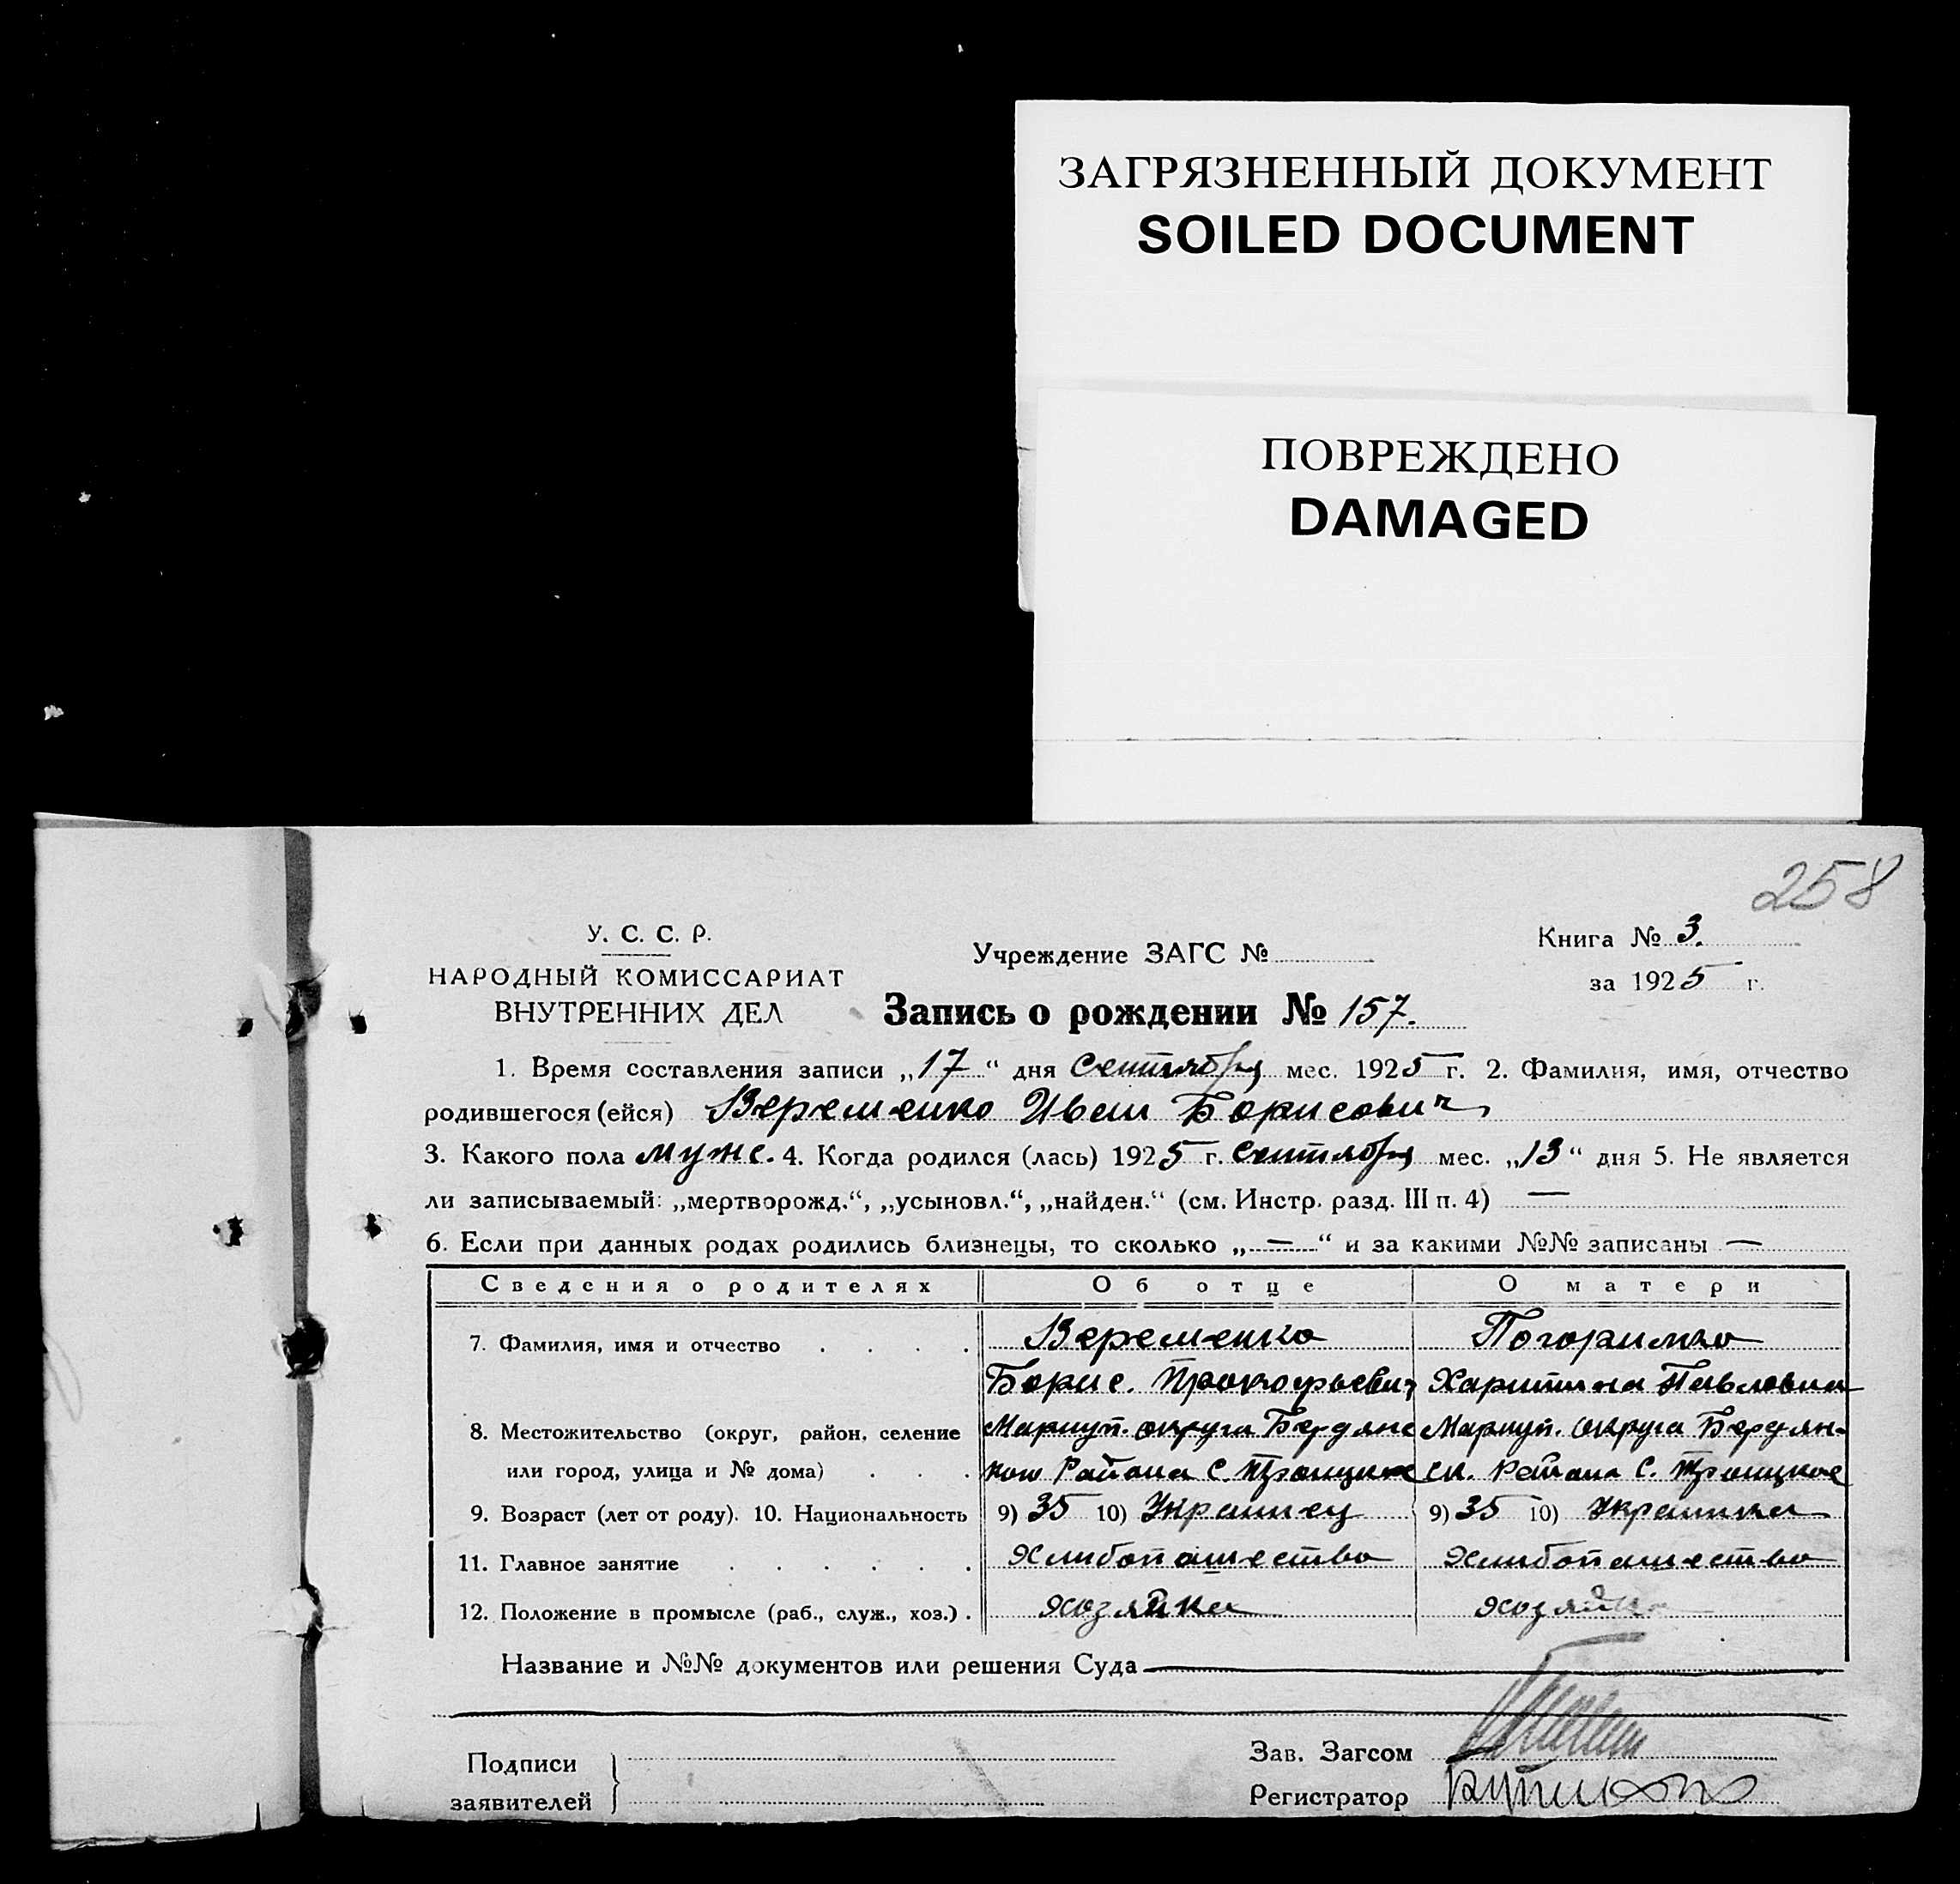 ЗАГРЯЗНЕННЫЙ ДОКУМЕНТ
SOILED DOCUMENT
ПОВРЕЖДЕНО
DAMAGED
258
У. С. С. Р.
НАРОДНЫЙ КОМИССАРИАТ
ВНУТРЕННИХ ДЕЛ
Учреждение ЗАГС №
Книга № 3.
за 1925 г.
Запись о рождении № 157.
1. Время составления записи „17“ дня сентября мес. 1925 г. 2. Фамилия, имя, отчество
родившегося (ейся) Веременко Иван Борисович
3. Какого пола муж. 4. Когда родился (лась) 1925 г. сентября мес. „13“ дня 5. Не является
ли записываемый: „мертворожд.“, „усыновл.“, „найден.“ (см. Инстр. разд. III п. 4) —
6. Если при данных родах родились близнецы, то сколько „—“ и за какими №№ записаны —
Сведения о родителях Об отце О матери
7. Фамилия, имя и отчество . . . . Веременко Погорилко
Борис. Прокофьевич Харитина Павловна
8. Местожительство (округ, район, селение Мариуп. округа Бердянс Мариуп. округа Бердян-
или город, улица и № дома) . . . кого Района С. Троицкое ск. Района С. Троицкое
9. Возраст (лет от роду). 10. Национальность 9) 35 10) Украинец 9) 35 10) Украинка
11. Главное занятие . . . . . . Хлибопашество Хлибопашество
12. Положение в промысле (раб., служ., хоз.) . хозяйка хозяйка
Название и №№ документов или решения Суда
Подписи
заявителей
Зав. Загсом
Регистратор